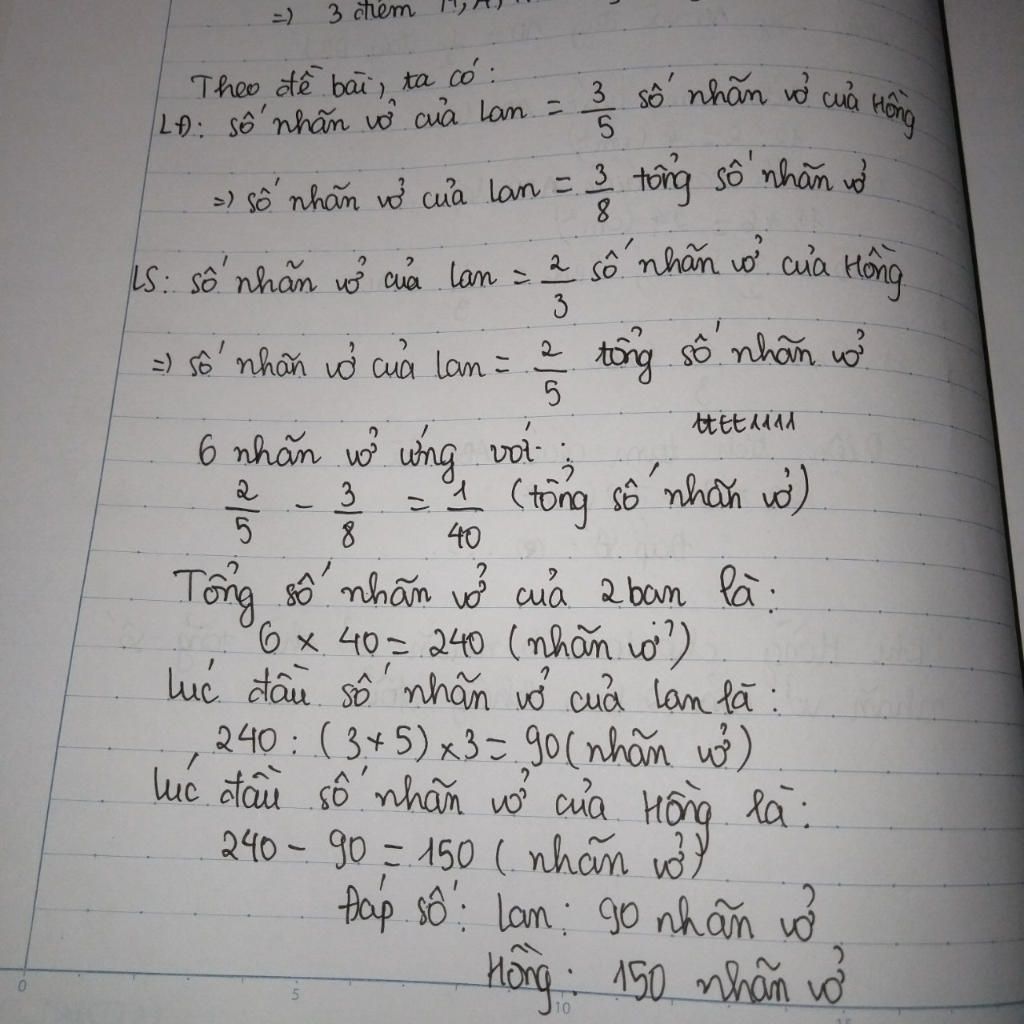 =) 3 điểm
Theo đề bài, ta có:
LĐ: số nhãn vở của Lan = 3/5 số nhãn vở của Hồng
=) số nhãn vở của Lan = 3/8 tổng số nhãn vở
LS: số nhãn vở của Lan = 2/3 số nhãn vở của Hồng
=) số nhãn vở của Lan = 2/5 tổng số nhãn vở
tttt1111
6 nhãn vở ứng với:
2/5 - 3/8 = 1/40 (tổng số nhãn vở)
Tổng số nhãn vở của 2 bạn là:
6 x 40 = 240 (nhãn vở)
Lúc đầu số nhãn vở của Lan là:
240 : (3+5) x 3 = 90 (nhãn vở)
Lúc đầu số nhãn vở của Hồng là:
240 - 90 = 150 (nhãn vở)
Đáp số: Lan: 90 nhãn vở
Hồng: 150 nhãn vở
0 5 10 15